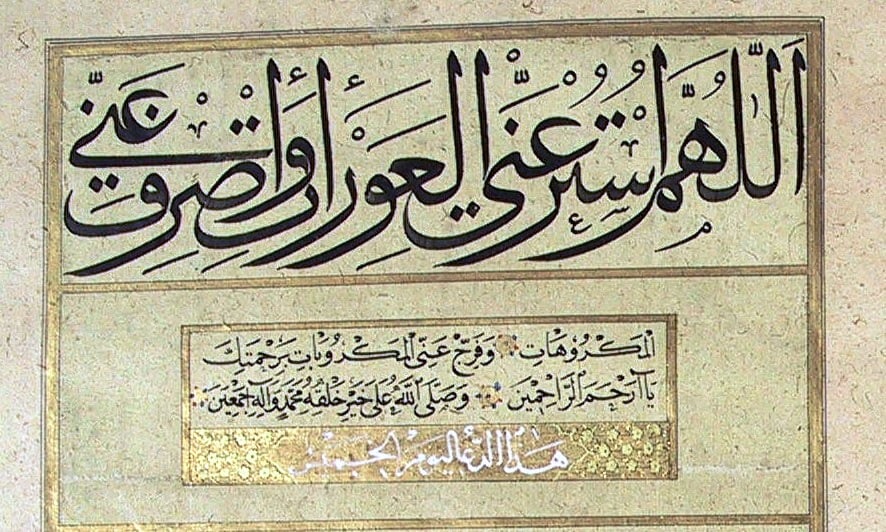 اَللّٰهُمَّ اسْتُرْ عَنِّي الْعَوْرَاتِ وَاصْرِفْ عَنِّي
الْمَكْرُوهَاتِ وَفَرِّجْ عَنِّي الْمَكْرُوبَاتِ بِرَحْمَتِكَ
يَا أَرْحَمَ الرَّاحِمِينَ وَصَلَّى اللهُ عَلَى خَيْرِ خَلْقِهِ مُحَمَّدٍ وَآلِهِ أَجْمَعِينَ
هذا الدعا ليوم الخميس